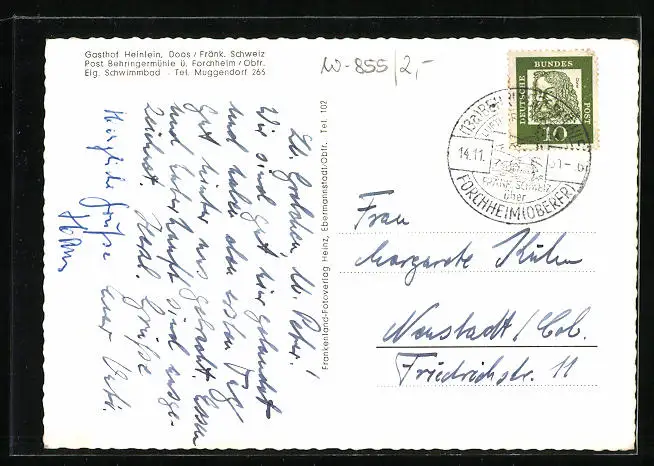 Gasthof Heinlein, Doos / Fränk. Schweiz
Post Behringermühle ü. Forchheim / Obfr.
Eig. Schwimmbad · Tel. Muggendorf 265
W-855/2,-
DEUTSCHE BUNDES POST
10
14.11.
FRÄNK. SCHWEIZ
über
FORCHHEIM (OBERFR)
Frankenland-Fotoverlag Heinz, Ebermannstadt/Obfr. Tel. 102
Lb. Gretchen, lb. Peter!
Wir sind gut hier gelandet
und haben den ersten Tag
gut hinter uns gebracht. Essen
und Unterkunft sind ausge-
zeichnet. Herzl. Grüße
Euer
Herzliche Grüße
Frau
Margarete Kühn
Neustadt / Cob.
Friedrichstr. 11